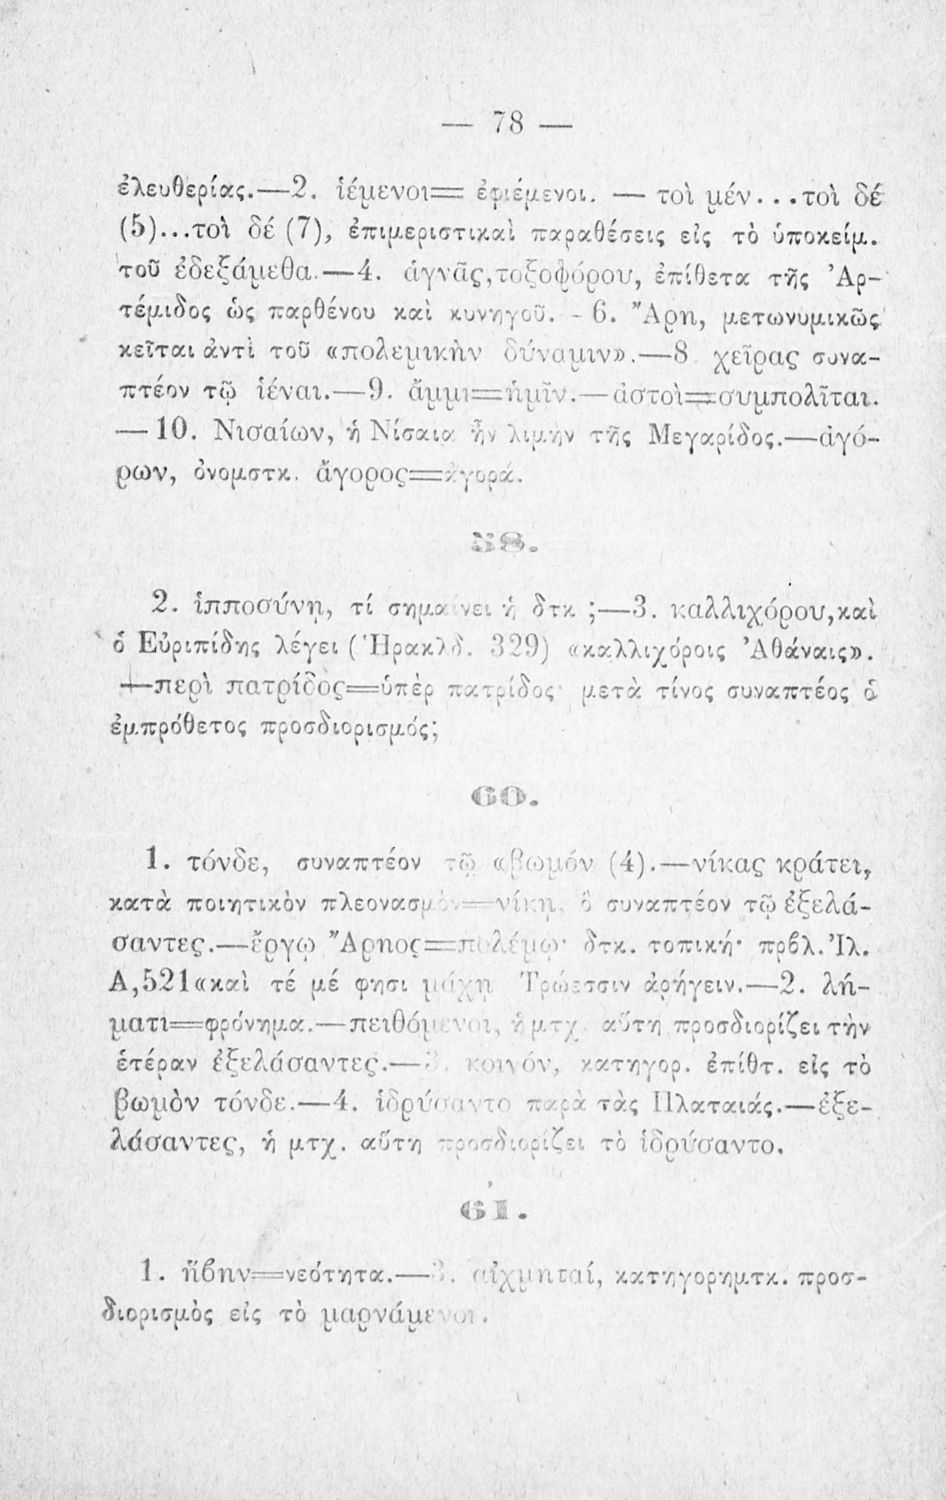 — 78 —
ἐλευθερίας.—2. ἱέμενοι= ἐφιέμενοι. — τοὶ μέν...τοὶ δέ
(5)...τοὶ δέ (7), ἐπιμεριστικαὶ παραθέσεις εἰς τὸ ὑποκείμ.
τοῦ ἐδεξάμεθα.—4. ἁγνᾶς,τοξοφόρου, ἐπίθετα τῆς Ἀρ-
τέμιδος ὡς παρθένου καὶ κυνηγοῦ. - 6. Ἄρη, μετωνυμικῶς
κεῖται ἀντὶ τοῦ «πολεμικὴν δύναμιν».—8. χεῖρας συνα-
πτέον τῷ ἱέναι.—9. ἄμμι=ἡμῖν.—ἀστοὶ=συμπολῖται.
—10. Νισαίων, ἡ Νίσαια ἦν λιμὴν τῆς Μεγαρίδος.—ἀγό-
ρων, ὀνομστκ. ἄγορος=ἀγορά.
58.
2. ἱπποσύνη, τί σημαίνει ἡ δτκ ;—3. καλλιχόρου,καὶ
ὁ Εὐριπίδης λέγει (Ἡρακλδ. 329) «καλλιχόροις Ἀθάναις».
—περὶ πατρίδος=ὑπὲρ πατρίδος· μετὰ τίνος συναπτέος ὁ
ἐμπρόθετος προσδιορισμός;
60.
1. τόνδε, συναπτέον τῷ «βωμόν (4).—νίκας κράτει,
κατὰ ποιητικὸν πλεονασμὸν=νίκῃ, ὃ συναπτέον τῷ ἐξελά-
σαντες.—ἔργῳ Ἄρηος=πολέμῳ· δτκ. τοπική· πρβλ. Ἰλ.
Α,521«καὶ τέ μέ φησι μάχῃ Τρώεσσιν ἀρήγειν.—2. λή-
ματι=φρόνημα.—πειθόμενοι, ἡ μτχ. αὕτη προσδιορίζει τὴν
ἑτέραν ἐξελάσαντες.—3. κοινόν, κατηγορ. ἐπίθτ. εἰς τὸ
βωμὸν τόνδε.—4. ἱδρύσαντο παρὰ τὰς Πλαταιάς.—ἐξε-
λάσαντες, ἡ μτχ. αὕτη προσδιορίζει τὸ ἱδρύσαντο.
61.
1. ἥβην=νεότητα.—3. αἰχμηταί, κατηγορημτκ. προσ-
διορισμὸς εἰς τὸ μαρνάμενοι.